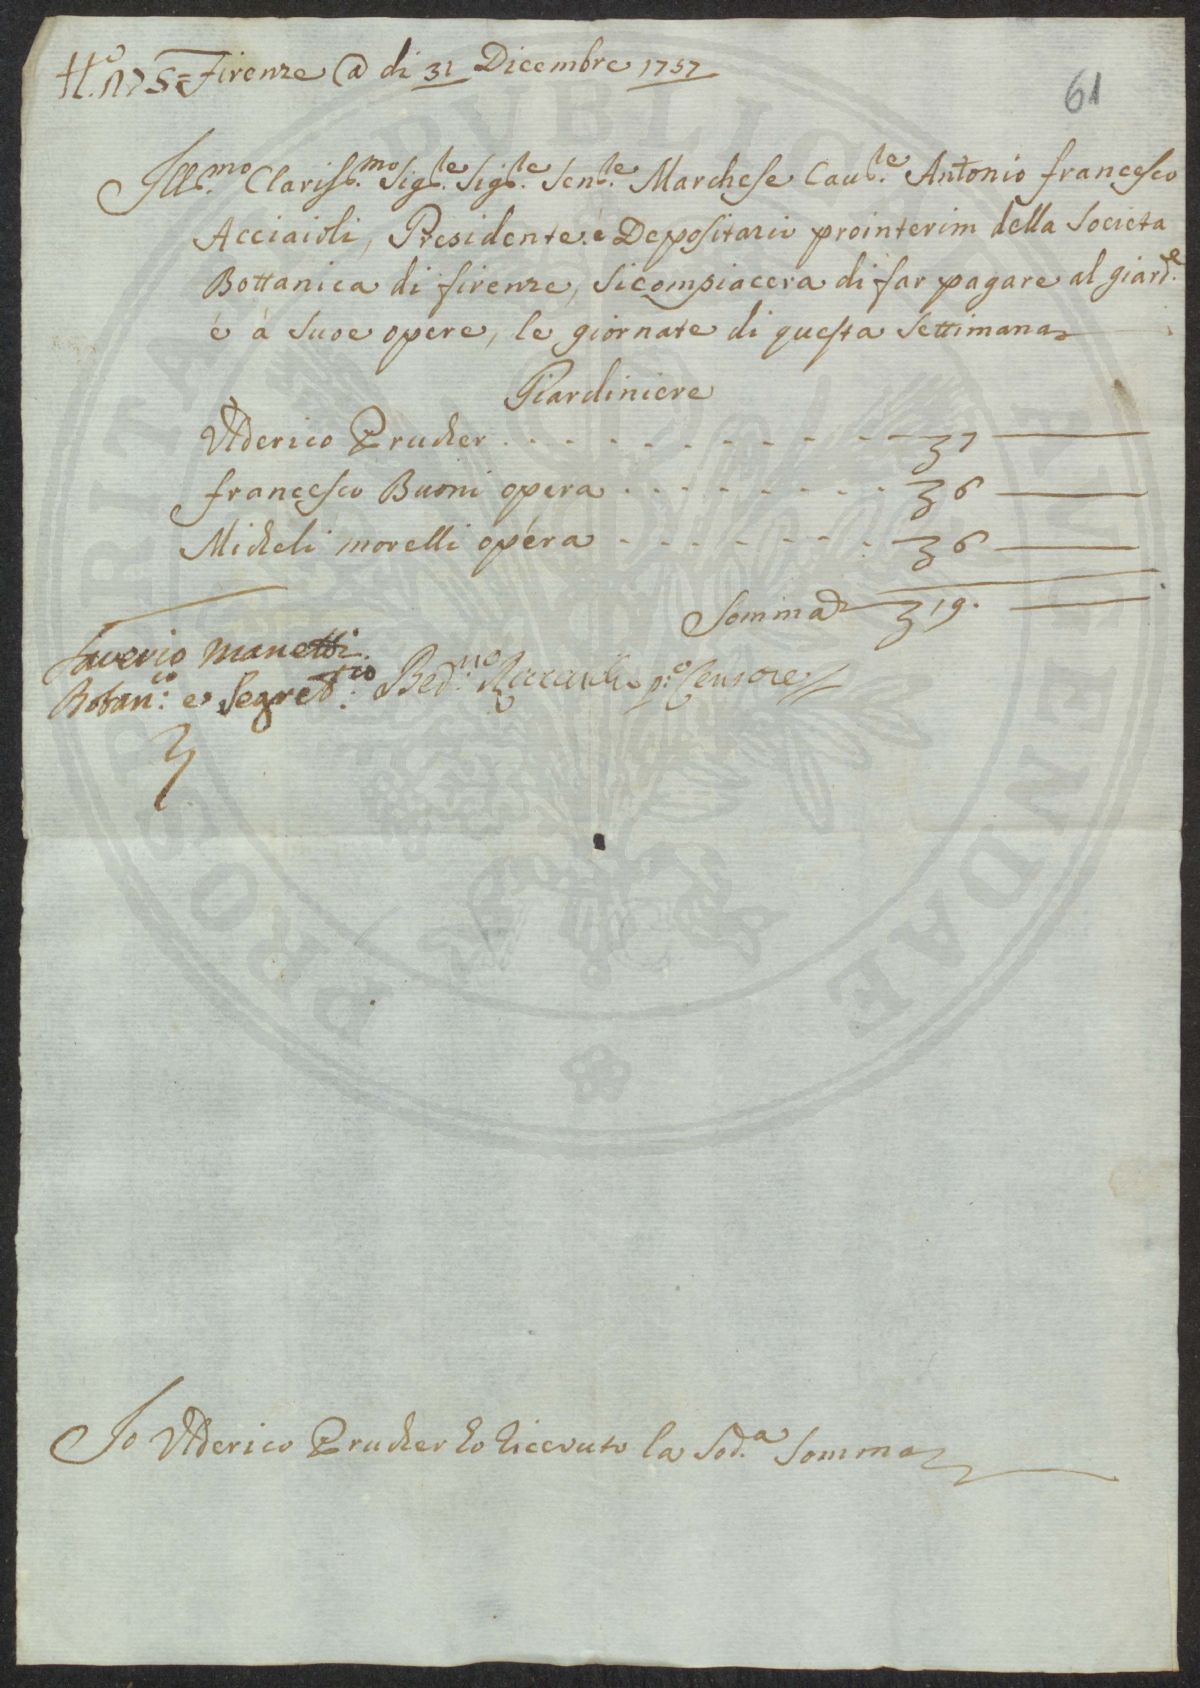 N.o 175 = Firenze @ di 31 Dicembre 1757
61
Ill.mo Clariss.mo Sig.le Sig.le Sen.le Marchese Cau.le Antonio francesco
Acciaioli, Presidente é Depositario prointerim della Societa
Bottanica di firenze, Sicompiacera di far pagare al giard.e
é á Suoe opere, le giornate di questa Settimana
Giardiniere
Uderico Prucker 7
francesco Buoni opera 6
Micheli morelli opéra 6
Somma 19.
Saverio Manetti
Botan.co e Segret.co
Bed.no p.o Censore
Io Uderico Prucker ho riceuuto la Sod.a Somma
PROSPERITATI PVBLICAE AVGENDAE